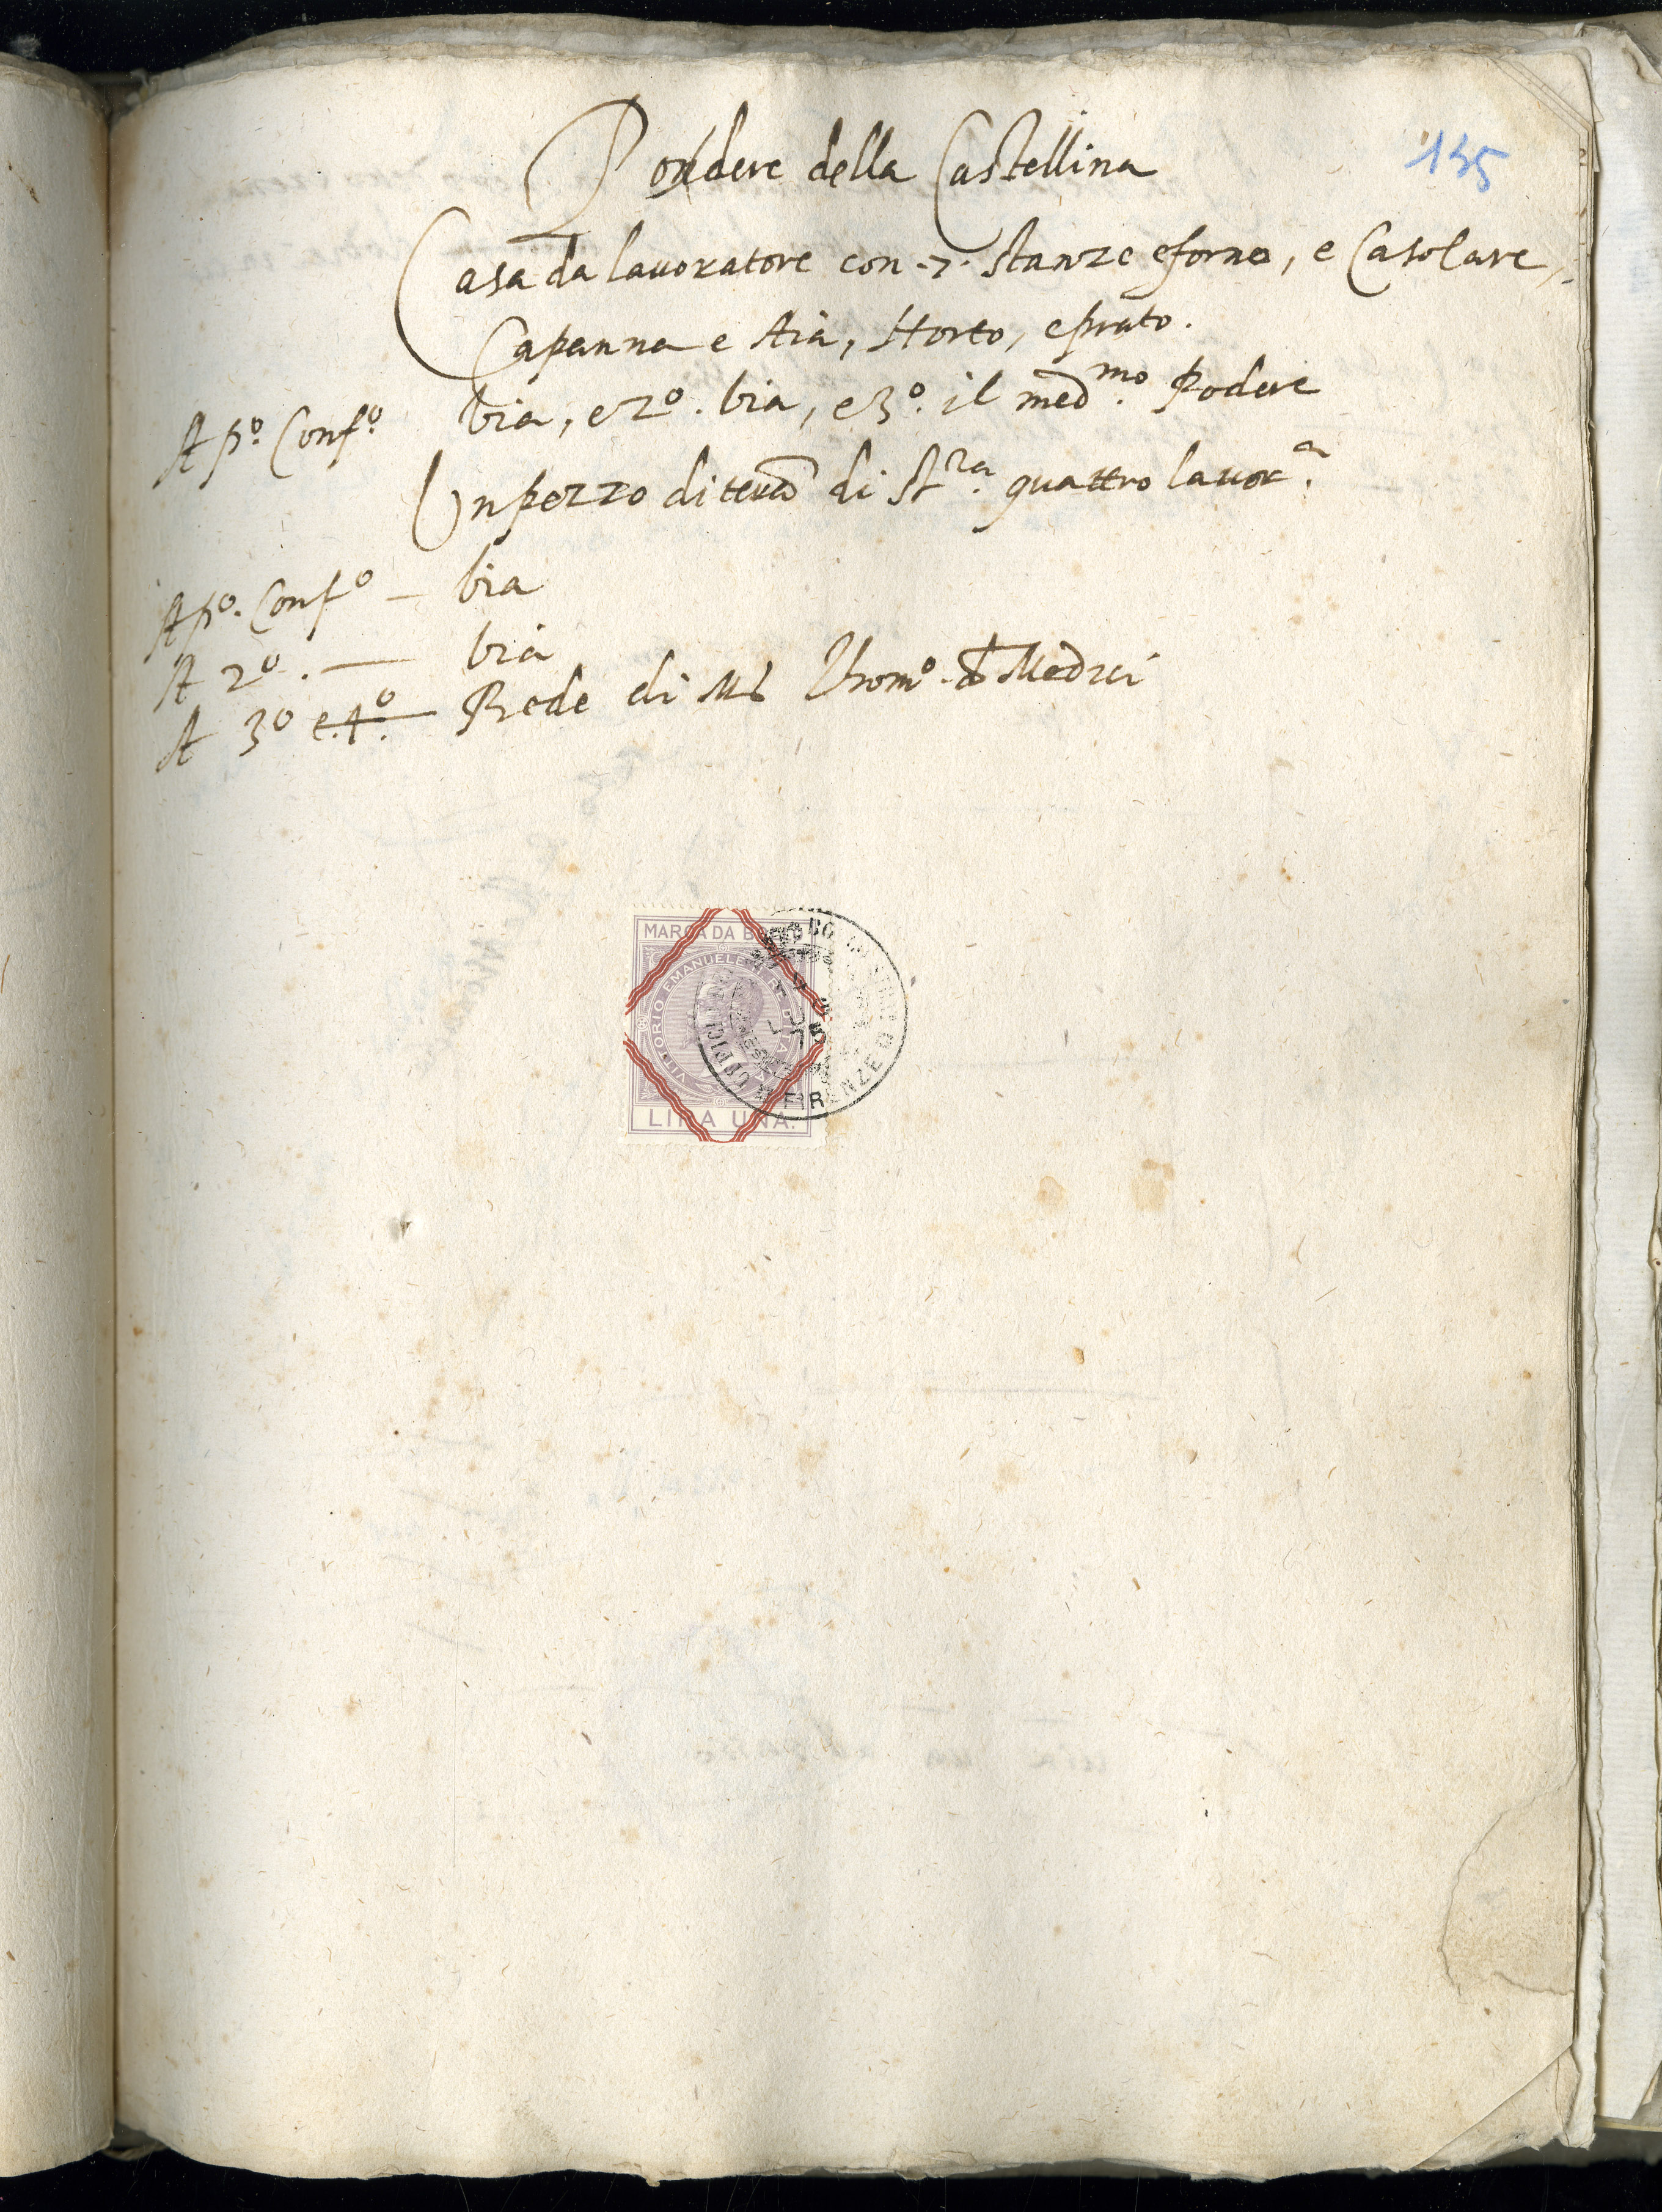 135
Podere della Castellina
Casa da lavoratore con .7. stanze e forno, e Casolare,
Capanna e Aia, Horto, e prato.
A pº. Confº. bia, e 2º. bia, e 3º. il medmo. Podere
Un pezzo di terra di stra. quattro lavora.
A pº. Confº — bia
A 2º. — bia
A 3º e 4º. Rede di Ms Thomº. de Medici
MARCA DA BO
VITTORIO EMANUELE II RE D'ITALIA
LIRA UNA.
FIRENZE